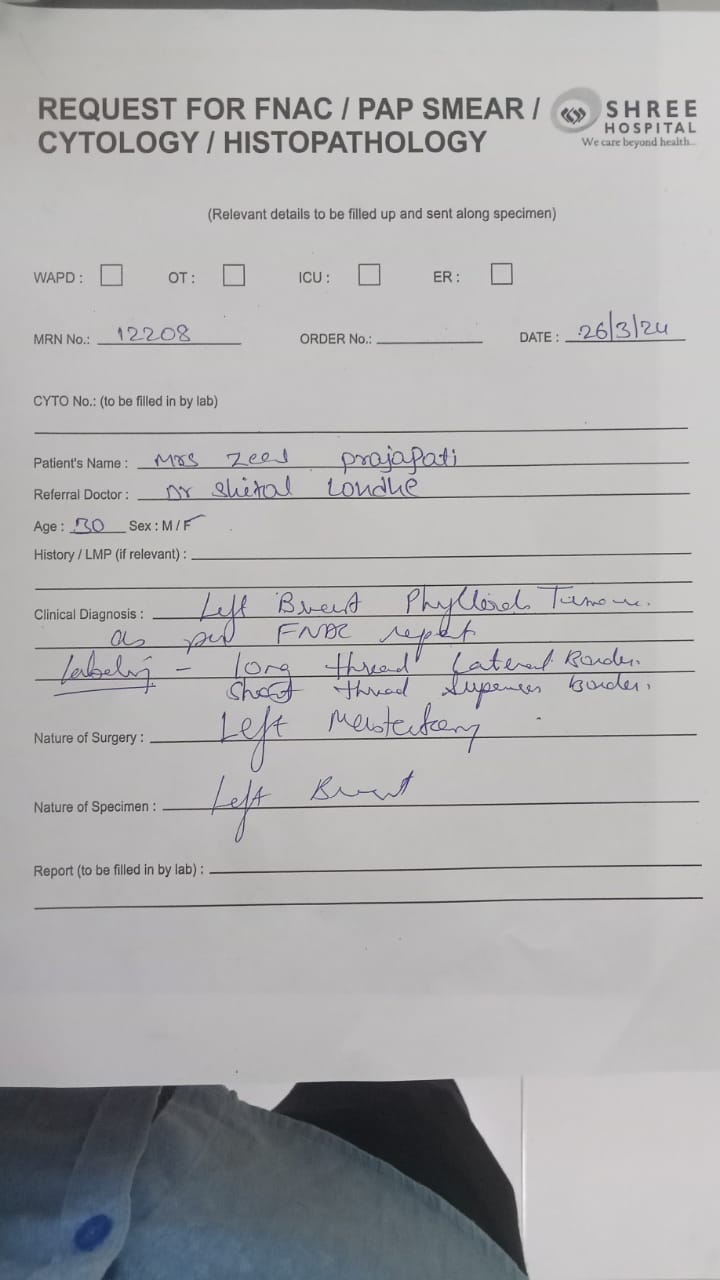 REQUEST FOR FNAC / PAP SMEAR /
CYTOLOGY / HISTOPATHOLOGY
SHREE
HOSPITAL
We care beyond health...
(Relevant details to be filled up and sent along specimen)
WAPD : OT : ICU : ER :
MRN No.: 12208 ORDER No.: DATE : 26/3/24
CYTO No.: (to be filled in by lab)
Patient's Name : Mrs Zeel prajapati
Referral Doctor : Dr Shital Londhe
Age : 30 Sex : M / F
History / LMP (if relevant) :
Clinical Diagnosis : Left Breast Phylloids Tumour.
as per FNAC report
Labeling - long thread Lateral Border.
Short thread Superior Border.
Nature of Surgery : Left
Nature of Specimen : Left Breast
Report (to be filled in by lab) :